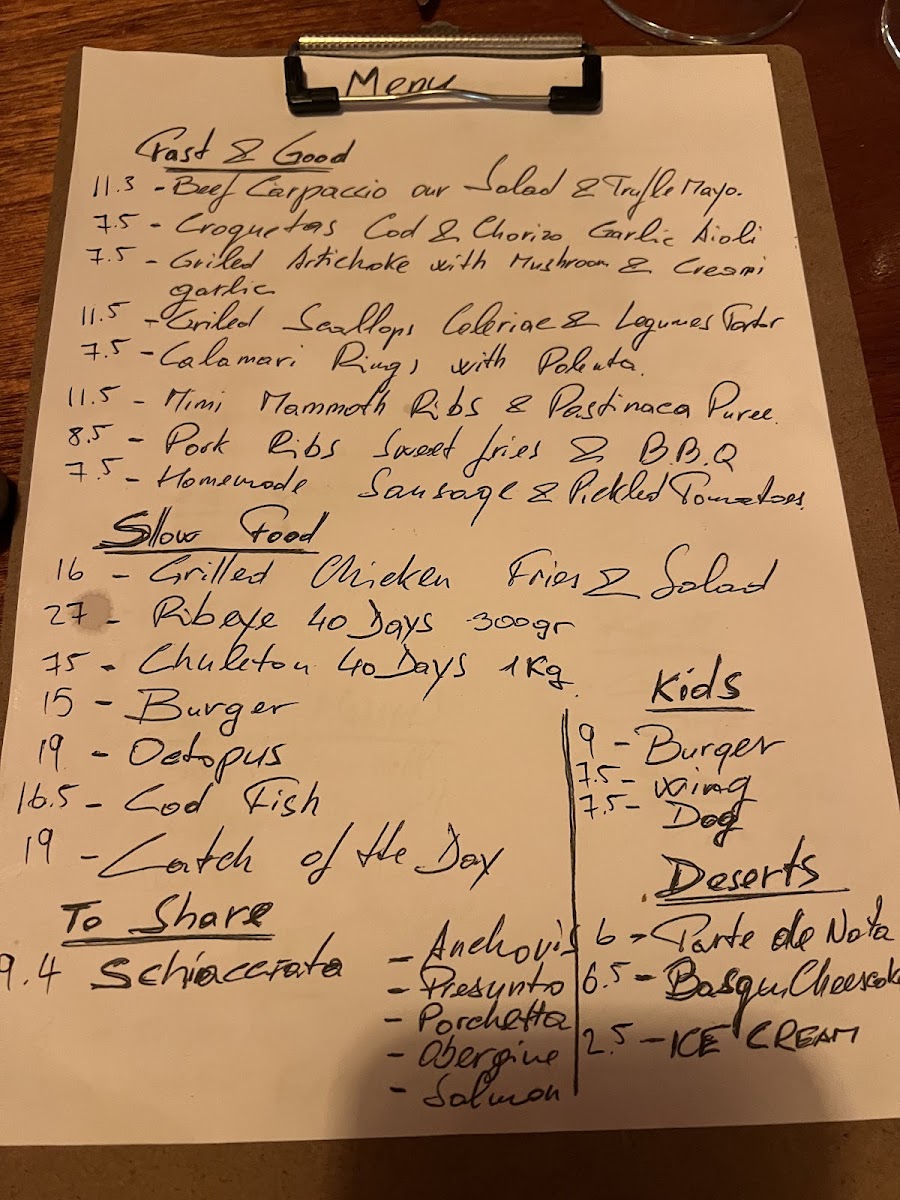 Menu
Fast & Good
11.3 - Beef Carpaccio our Salad & Trufle Mayo.
7.5 - Croquetas Cod & Chorizo Garlic Aioli
7.5 - Griled Artichoke with Mushroom & Creami
garlic
11.5 - Griled Scallops Celeriac & Legumes Tartar
7.5 - Calamari Rings with Polenta.
11.5 - Mimi Mammoth Ribs & Pastinaca Puree.
8.5 - Pork Ribs Sweet fries & B.B.Q
7.5 - Homemade Sausage & Pickled Tomatoes.
Slow Food
16 - Grilled Chicken Fries & Salad
27 - Ribeye 40 Days 300gr
75 - Chuleton 40 Days 1Kg.
15 - Burger
19 - Octopus
16.5 - Cod Fish
19 - Catch of the Day
To Share
9.4 Schiacciata
- Anchovis
- Presunto
- Porchetta
- Obergine
- Salmon
Kids
9 - Burger
7.5 - wing
7.5 - Dog
Deserts
6 - Tarte de Nata
6.5 - Basqu Cheescake
2.5 - ICE CREAM